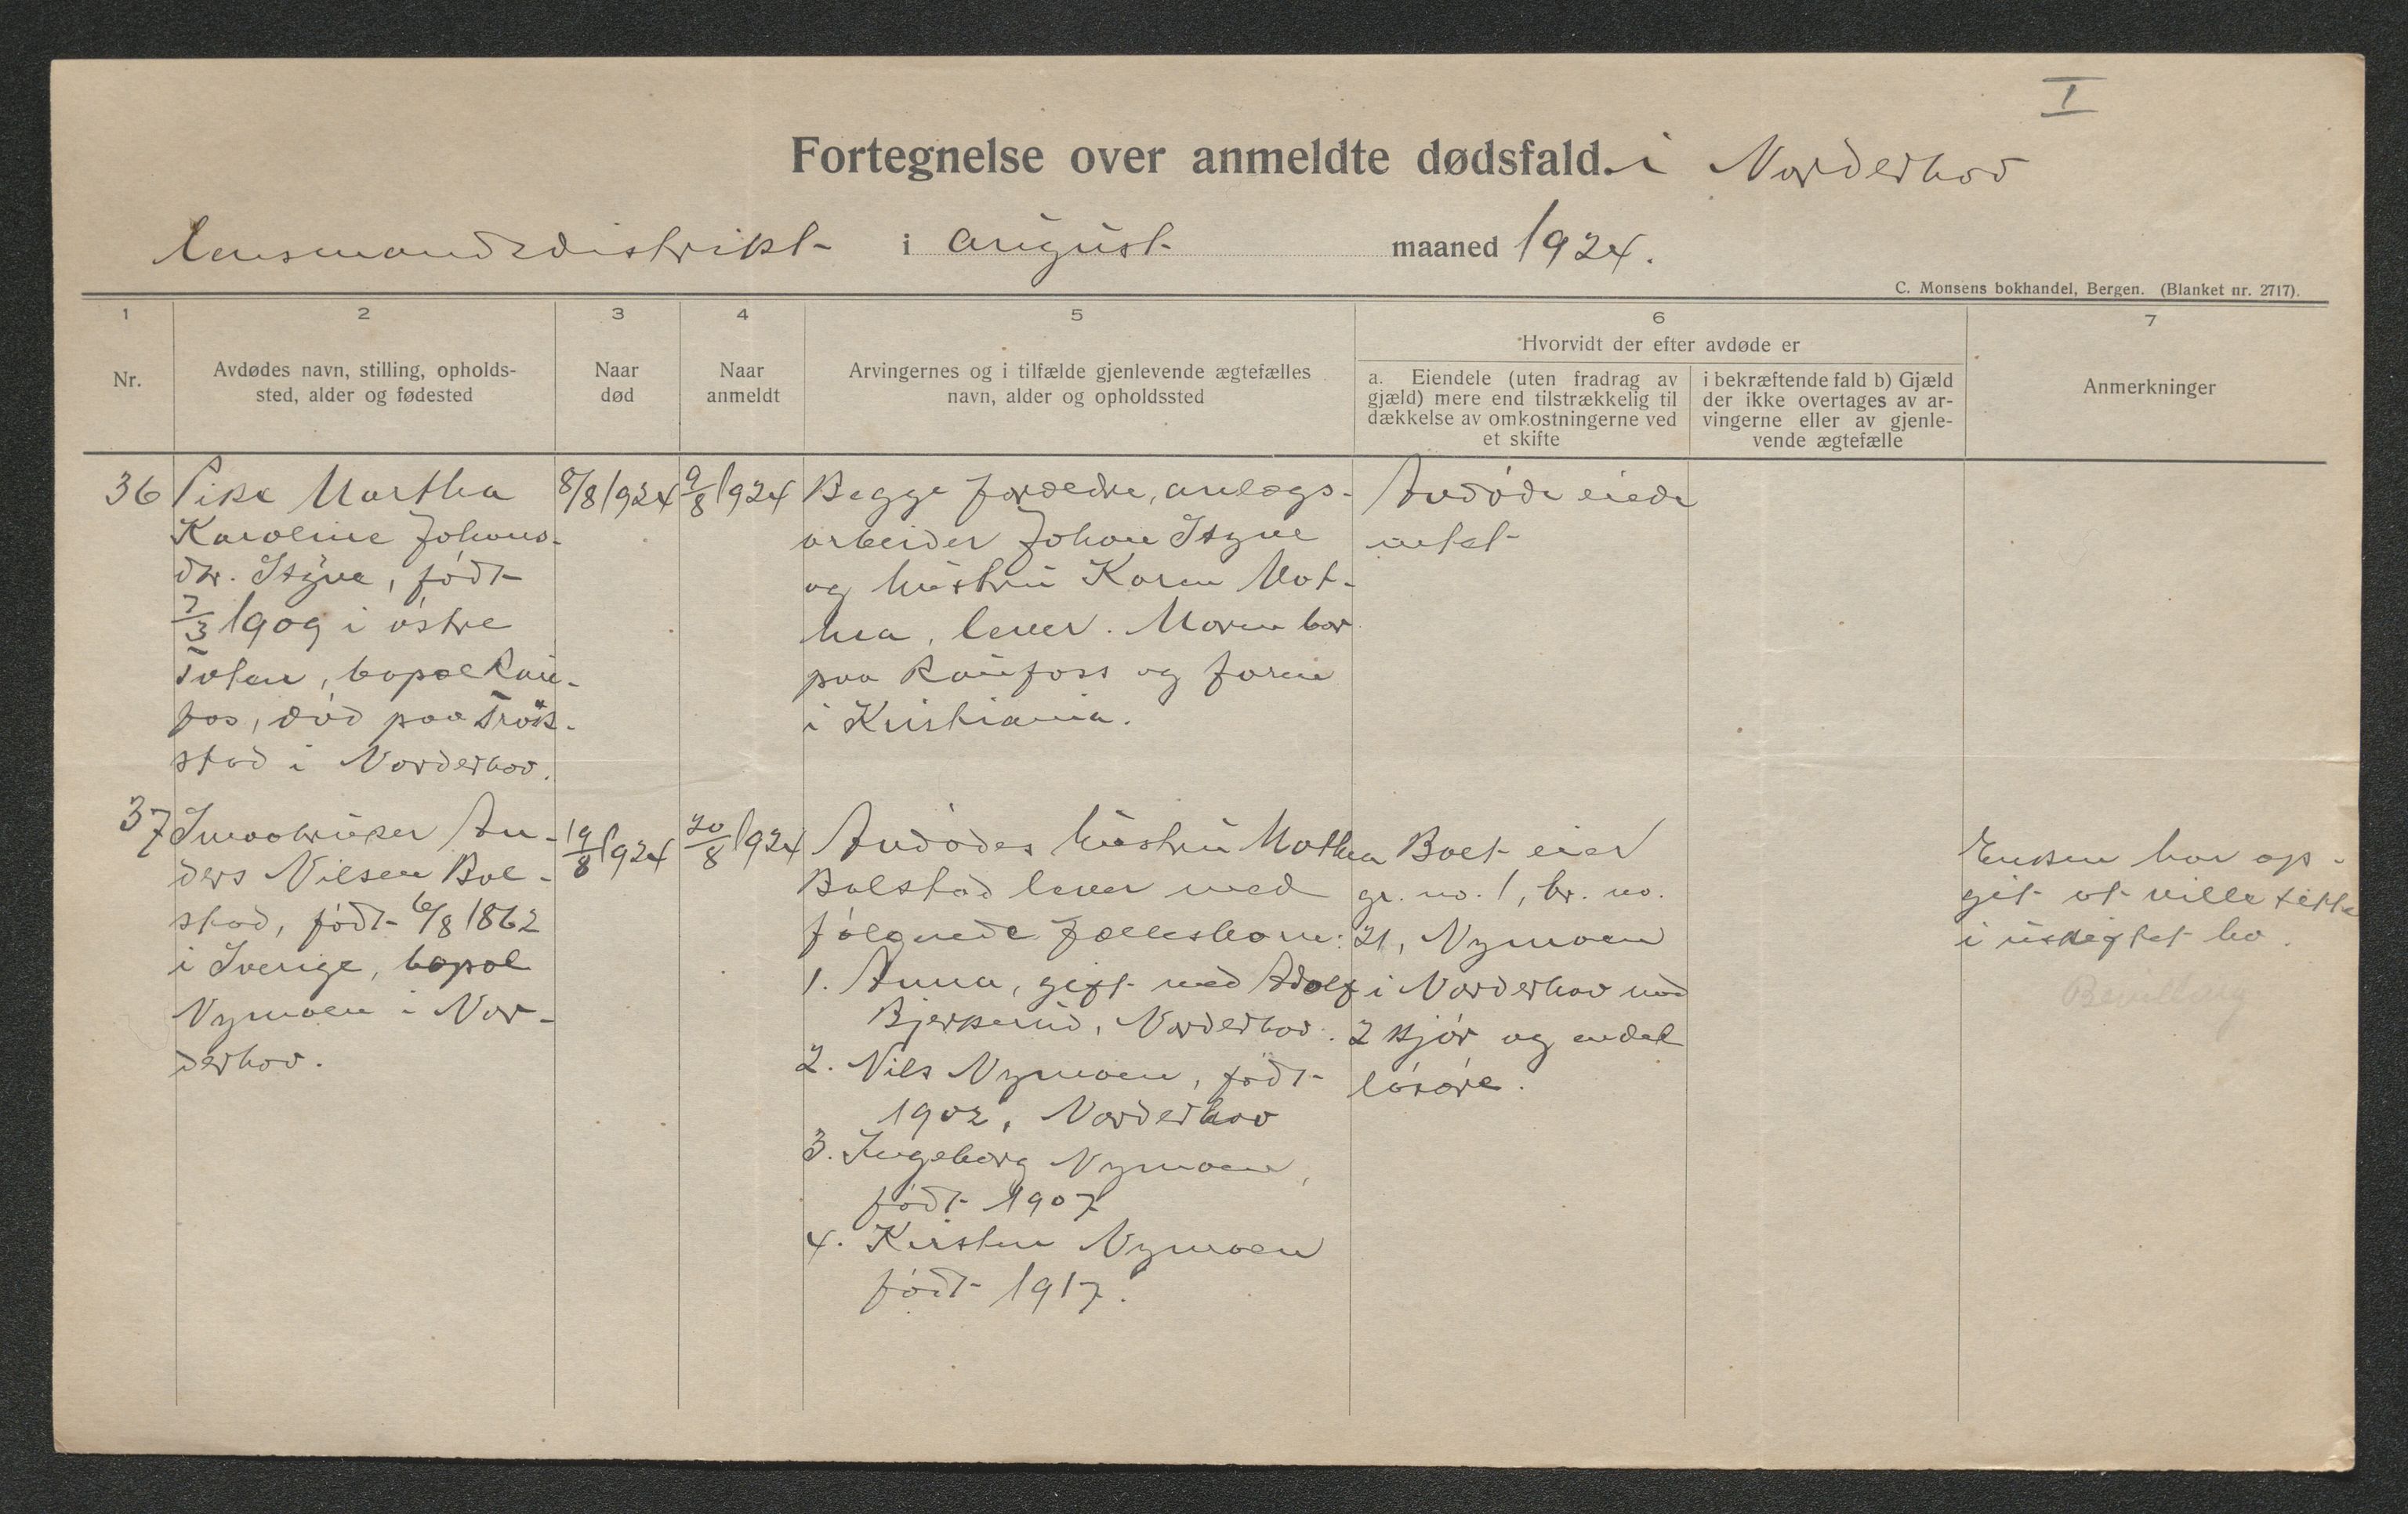 I
Fortegnelse over anmeldte dødsfald. i Norderhov
lensmandsdistrikt i august maaned 1924.
C. Monsens bokhandel, Bergen. (Blanket nr. 2717).
1
2
3
4
5
6
7
Nr.
Avdødes navn, stilling, opholds-
sted, alder og fødested
Naar
død
Naar
anmeldt
Arvingernes og i tilfælde gjenlevende ægtefælles
navn, alder og opholdssted
Hvorvidt der efter avdøde er
a. Eiendele (uten fradrag av
gjæld) mere end tilstrækkelig til
dækkelse av omkostningerne ved
et skifte
i bekræftende fald b) Gjæld
der ikke overtages av ar-
vingerne eller av gjenle-
vende ægtefælle
Anmerkninger
36
Pike Martha
Karoline Johans-
dtr. Styve, født
7/3 1909 i østre
Toten, bopæl Rau-
fos, død paa
stad i Norderhov.
8/8 1924
9/8 1924
Begge forældre, anlægs-
arbeider Johan Styve
og hustru Karen Mat-
hea, lever. Moren bor
paa Raufoss og faren
i Kristiania.
Avdøde eiede
intet
37
Smaabruker An-
ders Nilsen Bol-
stad, født 6/8 1862
i Sverige, bopæl
Nymoen i Nor-
derhov.
19/8 1924
20/8 1924
Avdødes hustru Mathea
Bolstad lever med
følgende fællesbarn:
1. Anna, gift med Adolf
Bjerkerud, Norderhov.
2. Nils Nymoen, født
1902, Norderhov
3. Ingeborg Nymoen,
født 1907
4. Kirsten Nymoen
født 1917.
Boet eier
gr. no. 1, br. no.
21, Nymoen
i Norderhov med
2 kjør og endel
løsøre.
Enken har op-
git at ville sitte
i uskiftet bo.
Bevilling